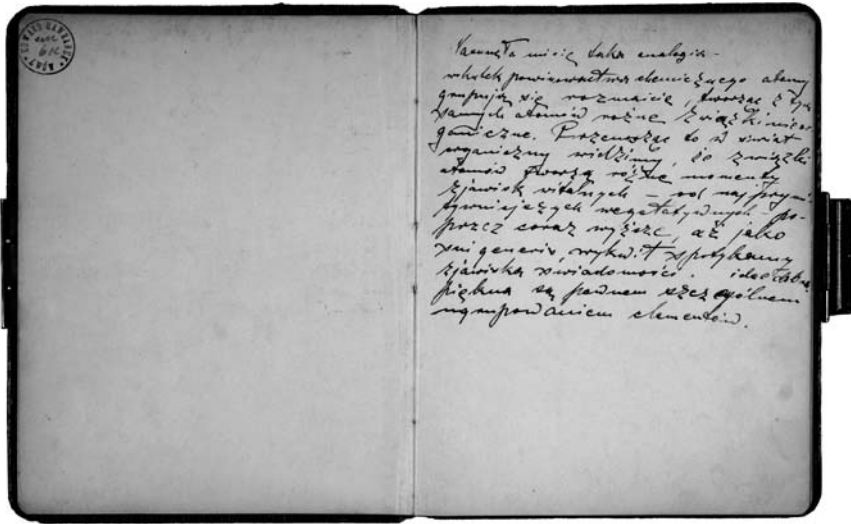 mi się taka analogia –
wskutek powinowactwa chemicznego atomy
grupują się rozmaicie, tworząc z tych
samych atomów różne związki nieor
ganiczne. Przenosząc to w świat
organiczny widzimy, że związki
atomów tworzą różne momenty
zjawisk witalnych – od najprymi
tywniejszych wegetatywnych – po-
przez coraz wyższe, aż jako
sui generis, wykwit spotykamy
zjawiska świadomości. idea
piękna są pewnem szczególnem
ugrupowaniem elementów.